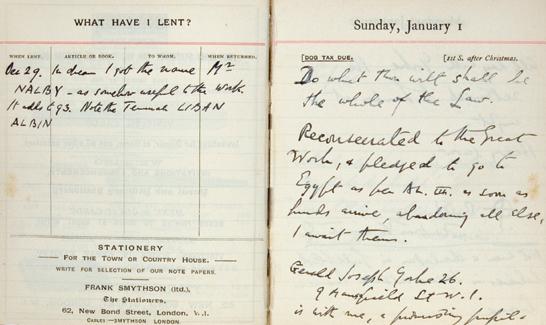 WHAT HAVE I LENT?
WHEN LENT. ARTICLE OR BOOK. TO WHOM. WHEN RETURNED.
Dec 29. In dream I got the name Mr
NALBY – as somehow useful to the Work.
It adds to 93. Note the Temurah LIBAN
ALBIN
STATIONERY
FOR THE TOWN OR COUNTRY HOUSE.
WRITE FOR SELECTION OF OUR NOTE PAPERS.
FRANK SMYTHSON (Ltd.),
The Stationers,
62, New Bond Street, London, W.1.
CABLES:—SMYTHSON LONDON
Sunday, January 1
[DOG TAX DUE. [1st S. after Christmas.
Do what thou wilt shall be
the whole of the Law.
Reconsecrated to the Great
Work, & pledged to go to
Egypt as per AL. III. as soon as
funds arrive, abandoning all else,
I await them.
Gerald Joseph Yorke 26.
9 Mansfield St W.1.
is with me, a promising pupil.